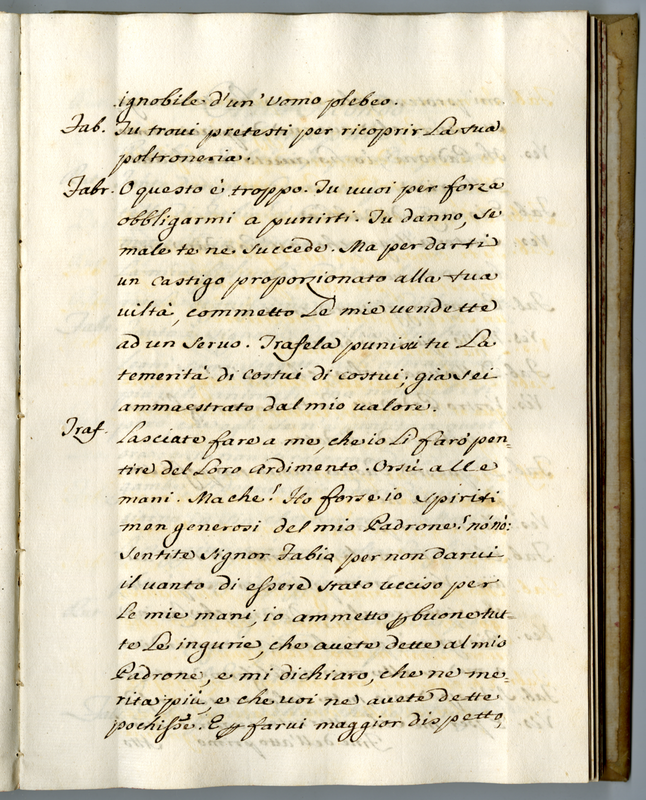 ignobile d'un' Uomo plebeo.
Fab. Tu trovi pretesti per ricoprir La tua
poltroneria.
Fabr. O questo è troppo. Tu vuoi per forza
obbligarmi a punirti. Tu danno, se
male te ne succede. Ma per darti
un castigo proporzionato alla tua
viltà, commetto Le mie vendette
ad un servo. Trafela punisci tu La
temerità di costui di costui; già sei
ammaestrato dal mio valore.
Traf. Lasciate fare a me, che io Li farò pen=
tire del Loro ardimento. Orsù alle
mani. Ma che! Ho forse io spiriti
men generosi del mio Padrone! nò nò:
Sentite Signor Fabia per non darvi
il vanto di essere stato ucciso per
Le mie mani, io ammetto p buone tut
te Le ingurie, che avete dette al mio
Padrone, e mi dichiaro, che ne me=
rita più, e che voi ne avete dette
pochisse. E p farvi maggior dispetto,